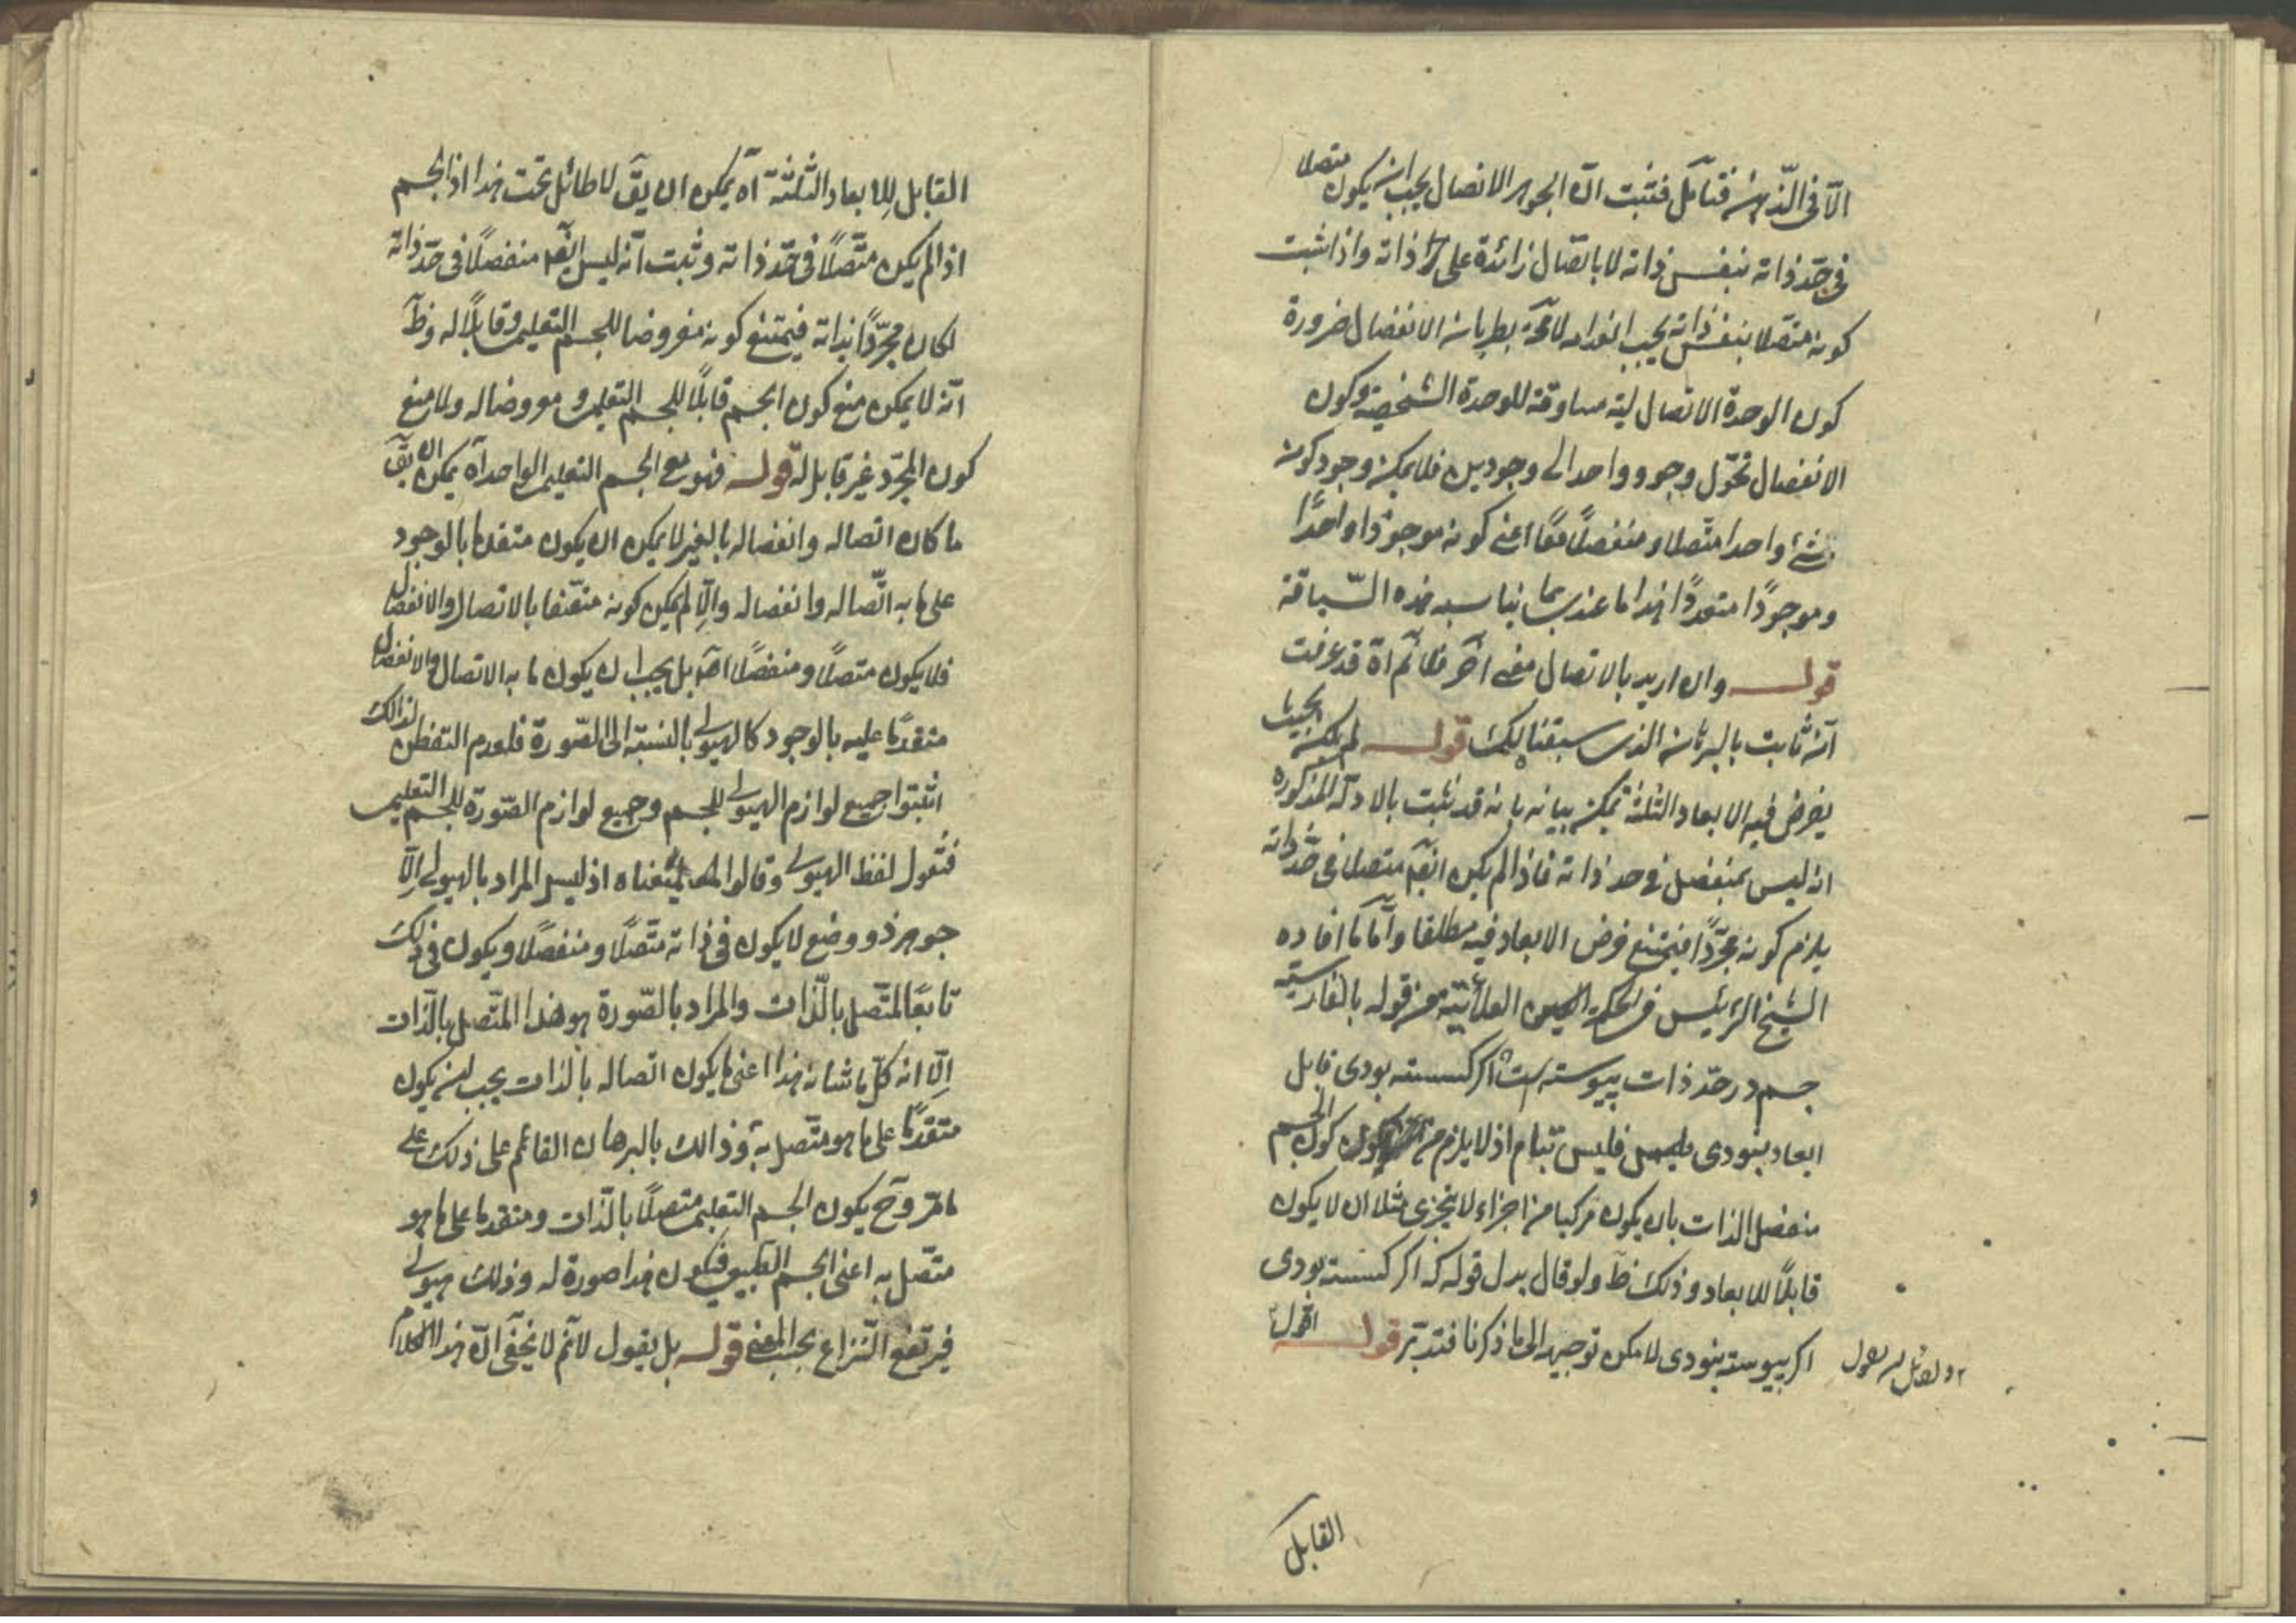 الّا فى الذّهن فتأمّل فثبت انّ الجوهر الاتصال يجب ان يكون متصلا
فى حدّ ذاته بنفس ذاته لا باتّصال زائدة على ذاته واذا ثبت
كونه متصلا بنفس ذاته يجب انعدامه لا محّة بطريان الانفصال ضرورة
كون الوحدة الاتصالية مساوقة للوحدة الشخصية وكون
الانفصال تحوّل وجود واحد الى وجودين فلا يمكن وجود كونه
شئ واحدا متّصلا ومنفصلًا معًا اعنى كونه موجودا واحدًا
وموجودًا متعددًا هذا ما عندى بما يناسب هذه السّياقة
قوله وان اريد بالاتصال معنى آخر فلا ثم اه قد عرفت
انّه ثابت بالبرهان الذى سبقنا اليك قوله لم يكن بحيث
يفرض فيه الابعاد الثلثة يمكن بيانه بانه قد ثبت بالادلة المذكورة
انه ليس بمنفصل فى حد ذاته فاذا لم يكن ايضا متصلا فى حدّ ذاته
يلزم كونه مجرّدًا فيمتنع فرض الابعاد فيه مطلقا وأمّا ما افاده
الشيخ الرئيس فى الحكمة العلائيّة من قوله بالفارسية
جسم در حدّ ذات پيوسته است اكر كسسته بودى قابل
ابعاد نبودى فليس بتام اذ لا يلزم من كون الجسم
منفصل الذات بان يكون مركبا من اجزاء لا يتجزى مثلا ان لا يكون
قابلًا للابعاد وذلك ظَ ولو قال بدل قوله كه اكر كسسته بودى
اكر پيوسته نبودى لامكن توجيهه الى ما ذكرنا فتدبّر قوله
القابل
القابل للابعاد الثلثة آه يمكن ان يقَ لا طائل تحت هذا اذ الجسم
اذا لم يكن متّصلًا فى حدّ ذاته وثبت انّه ليس ايضَا منفصلًا فى حدّ ذاته
لكان مجرّدًا بذاته فيمتنع كونه معروضا للجسم التعليمى وقابلًا له وظَ
انّه لا يمكن منع كون الجسم قابلًا للجسم التعليمى ومعروضا له ولا منع
كون المجرّد غير قابل له قوله فهو مع الجسم التعليمى الواحد آه يمكن ان يقَ
ما كان اتصاله وانفصاله بالغير لا يمكن ان يكون متقدما بالوجود
على ما به اتّصاله وانفصاله والّا لم يمكن كونه متّصفا بالاتصال والانفصال
فلا يكون متصلًا ومنفصلًا اصَ بل يجب ان يكون ما به الاتصال والانفصال
متقدمًا عليه بالوجود كالهيولى بالنسبة الى الصّورة فلعدم التفطن لذالك
اثبتوا جميع لوازم الهيولى للجسم وجميع لوازم الصّورة للجسم التعليمى
فنقول لفظ الهيولى وقالوا بمعناه اذ ليس المراد بالهيولى الّا
جوهر ذو وضع لا يكون فى ذاته متّصلًا ومنفصلًا ويكون فى ذلك
تابعًا للمتّصل بالذّات والمراد بالصّورة هو هذا المتّصل بالذّات
الّا انه كلّ ما شانه هذا اعنى ما يكون اتصاله بالذات يجب ان يكون
متقدمًا على ما هو متّصل به وذالك بالبرهان القائم على ذلك على
ما مرّ وحَ يكون الجسم التعليمى متصلًا بالذّات ومتقدما على ما هو
متّصل به اعنى الجسم الطبيعى فيكون هذا صورة له وذلك هيولى
فيرتفع النّزاع بحسب المعنى قوله بل يقول لا ثمّ لا يخفى انّ هذا الكلام